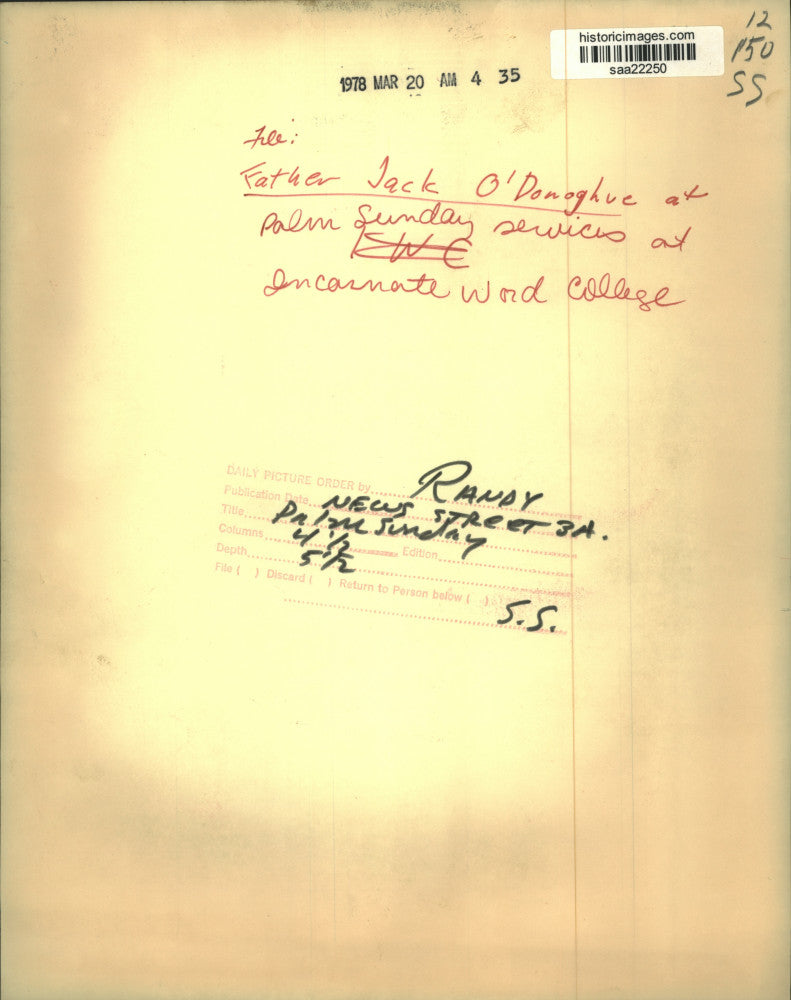 historicimages.com
saa22250
12
150
SS
1978 MAR 20 AM 4 35
File:
Father Jack O'Donoghue at
Palm Sunday services at
IWC
Incarnate Word College
DAILY PICTURE ORDER by RANDY
Publication Date NEWS STREET 3A.
Title Palm Sunday
Columns 4 1/2 Edition
Depth 5 1/2
File ( ) Discard ( ) Return to Person below ( )
S.S.